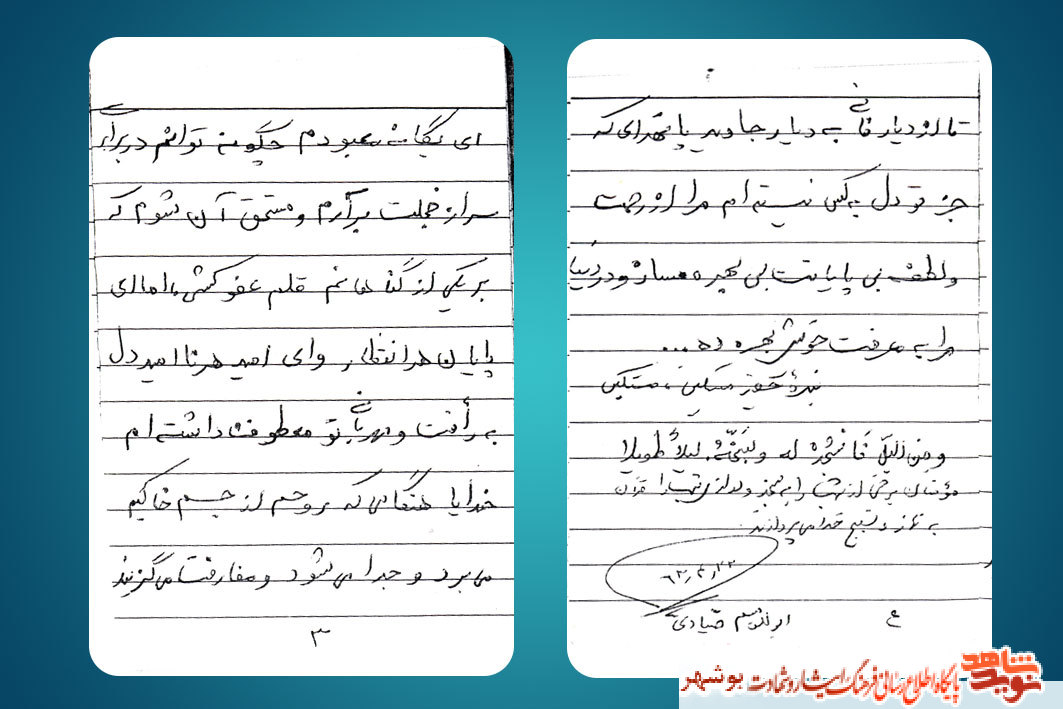 ای یگانه معبودم چگونه توانم در برابر
سر از خجلت برآرم و مستحق آن شوم که
بر یکی از گناهانم قلم عفو کشی اما ای
پایان هر انتظار و ای امید هر ناامید دل
به رأفت و مهربانی تو معطوف داشته ام
خدایا هنگامی که روحم از جسم خاکیم
می برد و جدا می شود و مفارقت می گزیند
۳
تا از دیار فانی به دیار جاوید پا نهد ای که
جز تو دل به کس نبسته ام مرا از رحمت
و لطف بی پایانت بی بهره مساز و در دنیا
مرا به معرفت خویش بهره ده ...
بنده حقیر مسکین، مستکین
و من اللیل فاسجد له و سبحه لیلاً طویلا
مؤمنان برخی از شب را به سجده و درازی شب را
به نماز و تسبیح خدا می پردازند
۶۲٫۴٫۲۳
ابوالقاسم صیادی
۴
نوید شاهد
پایگاه اطلاع رسانی فرهنگ ایثار و شهادت بوشهر